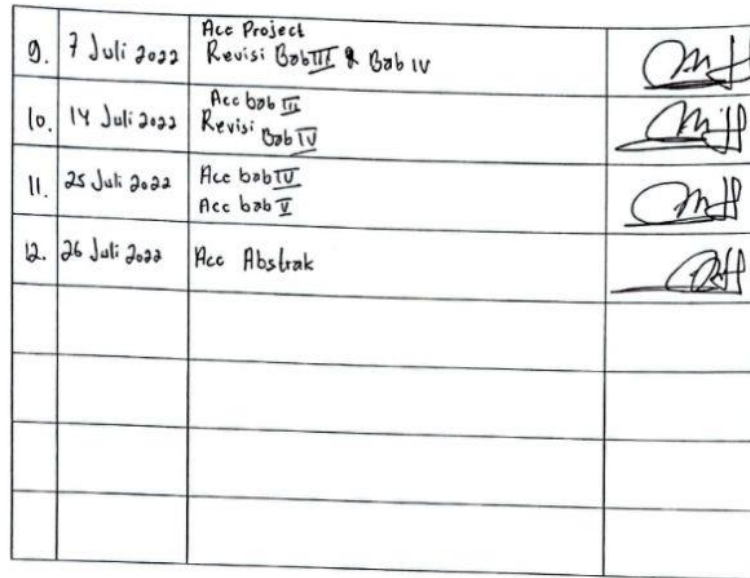 9. 7 Juli 2022 Acc Project
Revisi Bab III & Bab IV
10. 14 Juli 2022 Acc bab III
Revisi Bab IV
11. 25 Juli 2022 Acc bab IV
Acc bab V
12. 26 Juli 2022 Acc Abstrak